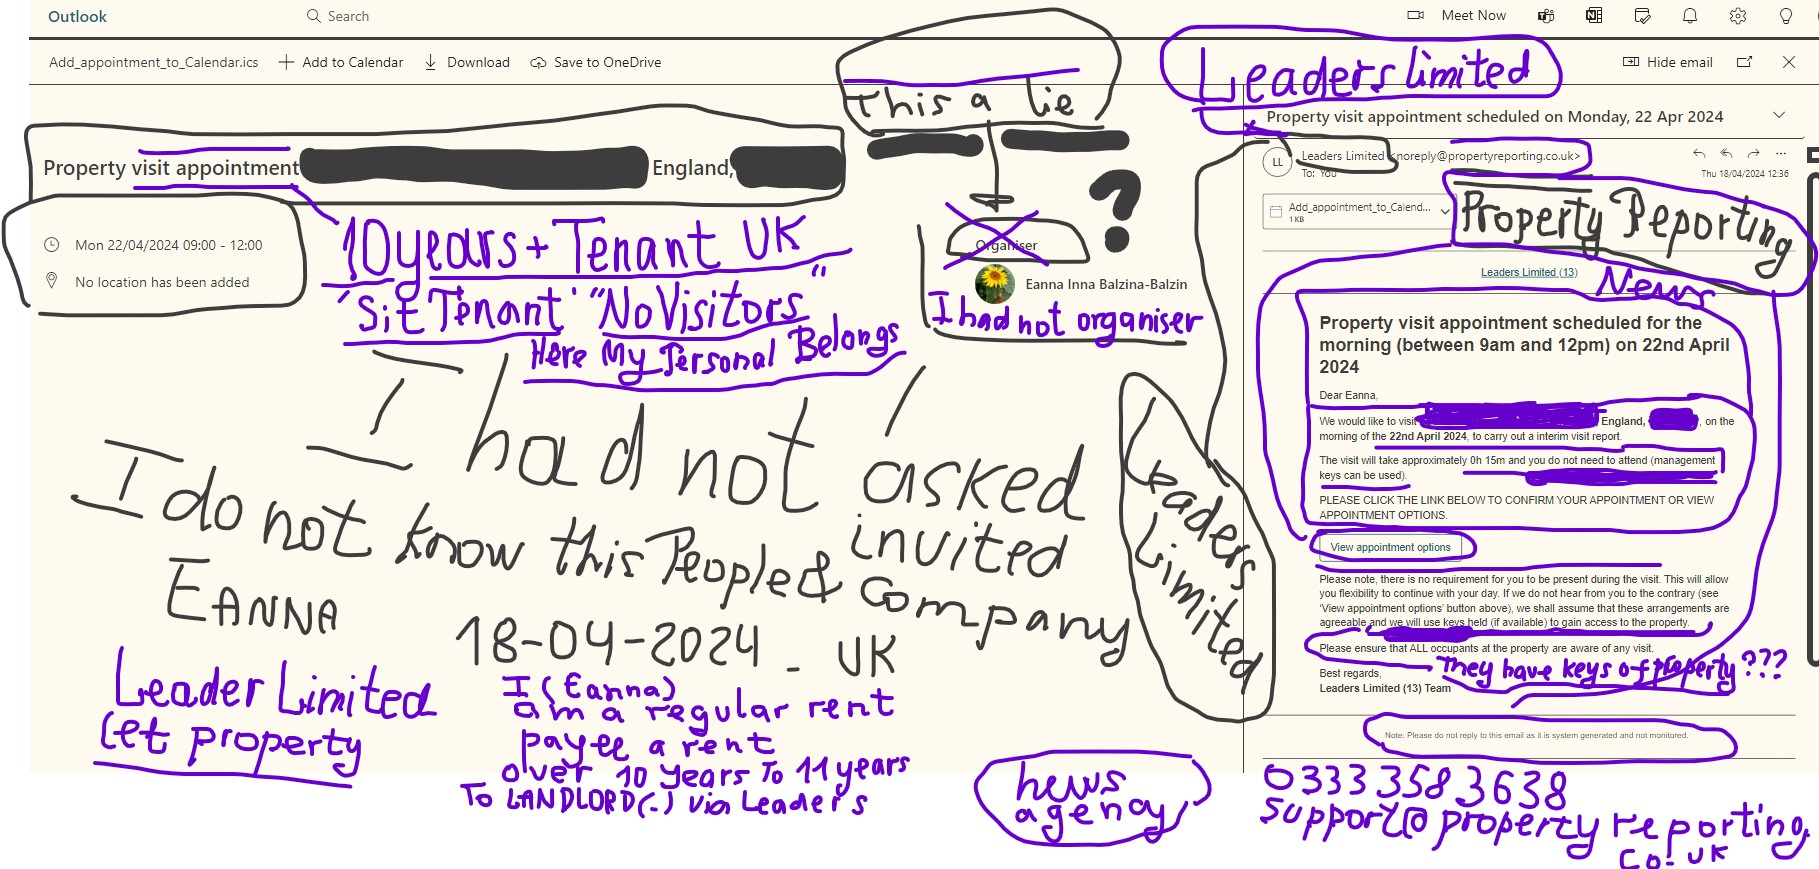 Outlook
Search
Meet Now
Add_appointment_to_Calendar.ics
Add to Calendar
Download
Save to OneDrive
Hide email
This a lie
Leaders limited
Property visit appointment scheduled on Monday, 22 Apr 2024
Property visit appointment England,
LL
Leaders Limited <noreply@propertyreporting.co.uk>
To: You
Thu 18/04/2024 12:36
Add_appointment_to_Calend...
1 KB
Property Reporting
Mon 22/04/2024 09:00 - 12:00
No location has been added
10years+Tenant UK
'Sit Tenant' "No Visitors"
Here My Personal Belongs
?
Organiser
Eanna Inna Balzina-Balzin
I had not organiser
Leaders Limited (13)
News
Property visit appointment scheduled for the
morning (between 9am and 12pm) on 22nd April
2024
Dear Eanna,
We would like to visit England, , on the
morning of the 22nd April 2024, to carry out a interim visit report.
The visit will take approximately 0h 15m and you do not need to attend (management
keys can be used).
PLEASE CLICK THE LINK BELOW TO CONFIRM YOUR APPOINTMENT OR VIEW
APPOINTMENT OPTIONS.
View appointment options
Please note, there is no requirement for you to be present during the visit. This will allow
you flexibility to continue with your day. If we do not hear from you to the contrary (see
'View appointment options' button above), we shall assume that these arrangements are
agreeable and we will use keys held (if available) to gain access to the property.
Please ensure that ALL occupants at the property are aware of any visit.
They have keys of property???
Best regards,
Leaders Limited (13) Team
Note: Please do not reply to this email as it is system generated and not monitored.
I had not asked
invited
I do not know this People&
Company
EANNA
18-04-2024 - UK
Leaders
Limited
Leader Limited
Let property
I (Eanna)
am a regular rent
payee a rent
over 10 years To 11 years
To LANDLORD(-) via Leaders
news
agency
0333 358 3638
support@propertyreporting.
co.uk